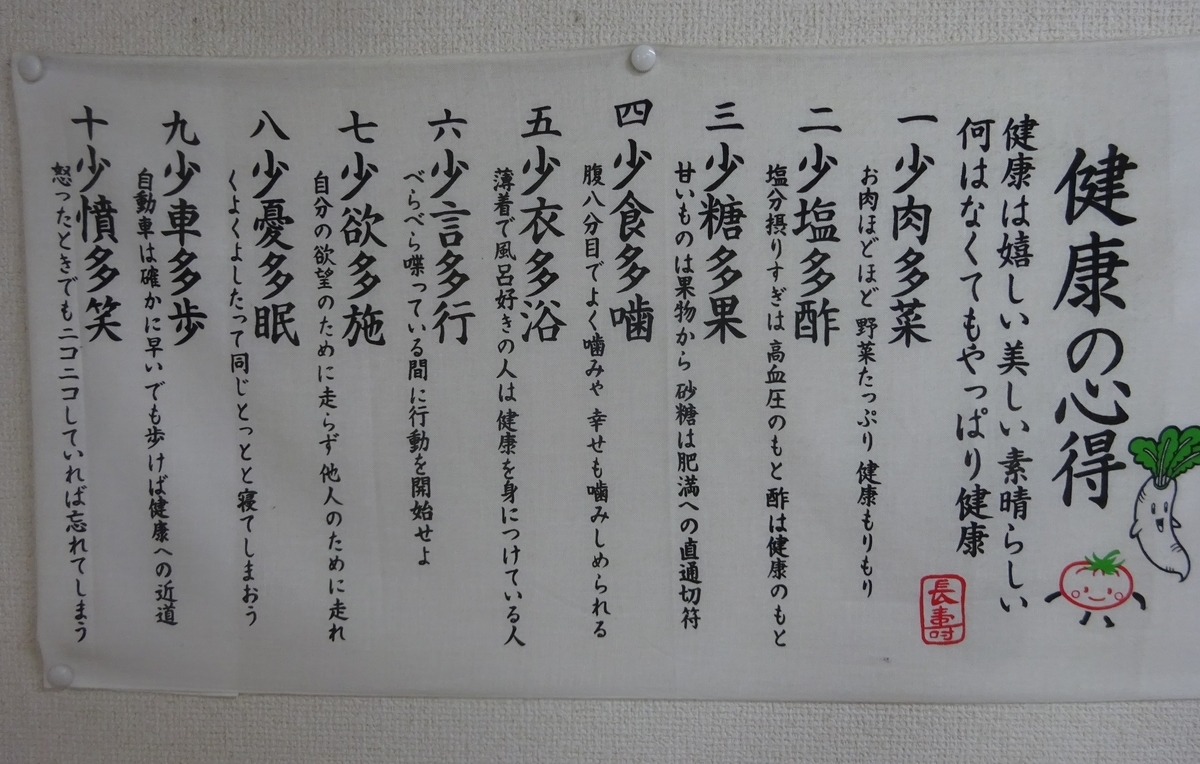 健康の心得
健康は嬉しい美しい素晴らしい
何はなくてもやっぱり健康
長寿
一少肉多菜
お肉ほどほど 野菜たっぷり 健康もりもり
二少塩多酢
塩分摂りすぎは 高血圧のもと 酢は健康のもと
三少糖多果
甘いものは果物から 砂糖は肥満への直通切符
四少食多噛
腹八分目でよく噛みゃ 幸せも噛みしめられる
五少衣多浴
薄着で風呂好きの人は 健康を身につけている人
六少言多行
べらべら喋っている間に行動を開始せよ
七少欲多施
自分の欲望のために走らず 他人のために走れ
八少憂多眠
くよくよしたって同じとっとと寝てしまおう
九少車多歩
自動車は確かに早いでも歩けば健康への近道
十少憤多笑
怒ったときでもニコニコしていれば忘れてしまう